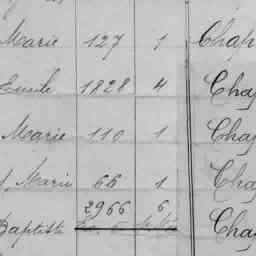 Marie 127 1 Chap
Emile 1828 4 Chap
Marie 110 1 Chap
Marie 66 1 Cha
2966 6
Baptiste Chap